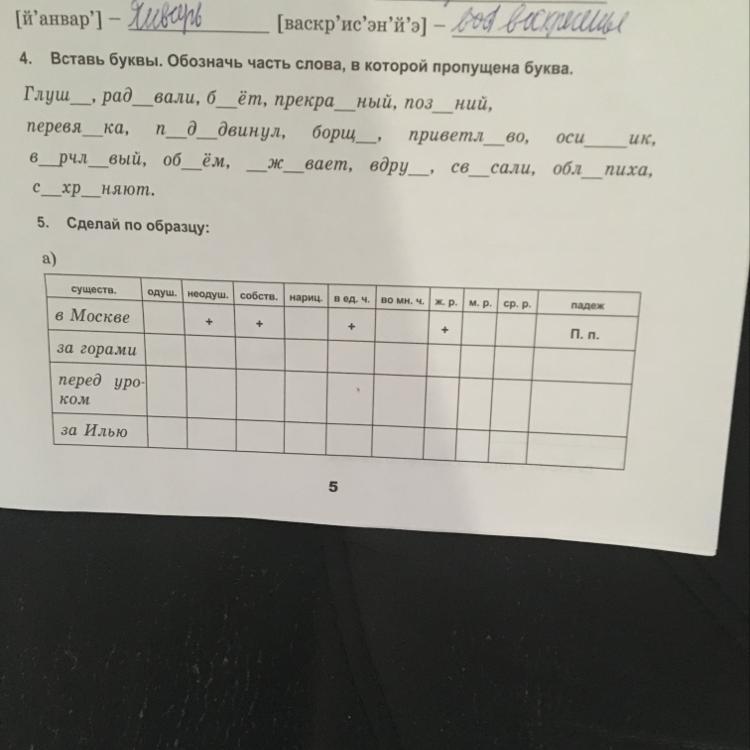 [й'анвар'] – Январь [васкр'ис'эн'й'э] – воскресенье
4. Вставь буквы. Обозначь часть слова, в которой пропущена буква.
Глуш__, рад__вали, б__ёт, прекра__ный, поз__ний,
перевя__ка, п__д__двинул, борщ__, приветл__во, оси____ик,
в__рчл__вый, об__ём, __ж__вает, вдру__, св__сали, обл__пиха,
с__хр__няют.
5. Сделай по образцу:
а)
существ. одуш. неодуш. собств. нариц. в ед. ч. во мн. ч. ж. р. м. р. ср. р. падеж
в Москве + + + + П. п.
за горами
перед уро-
ком
за Илью
5